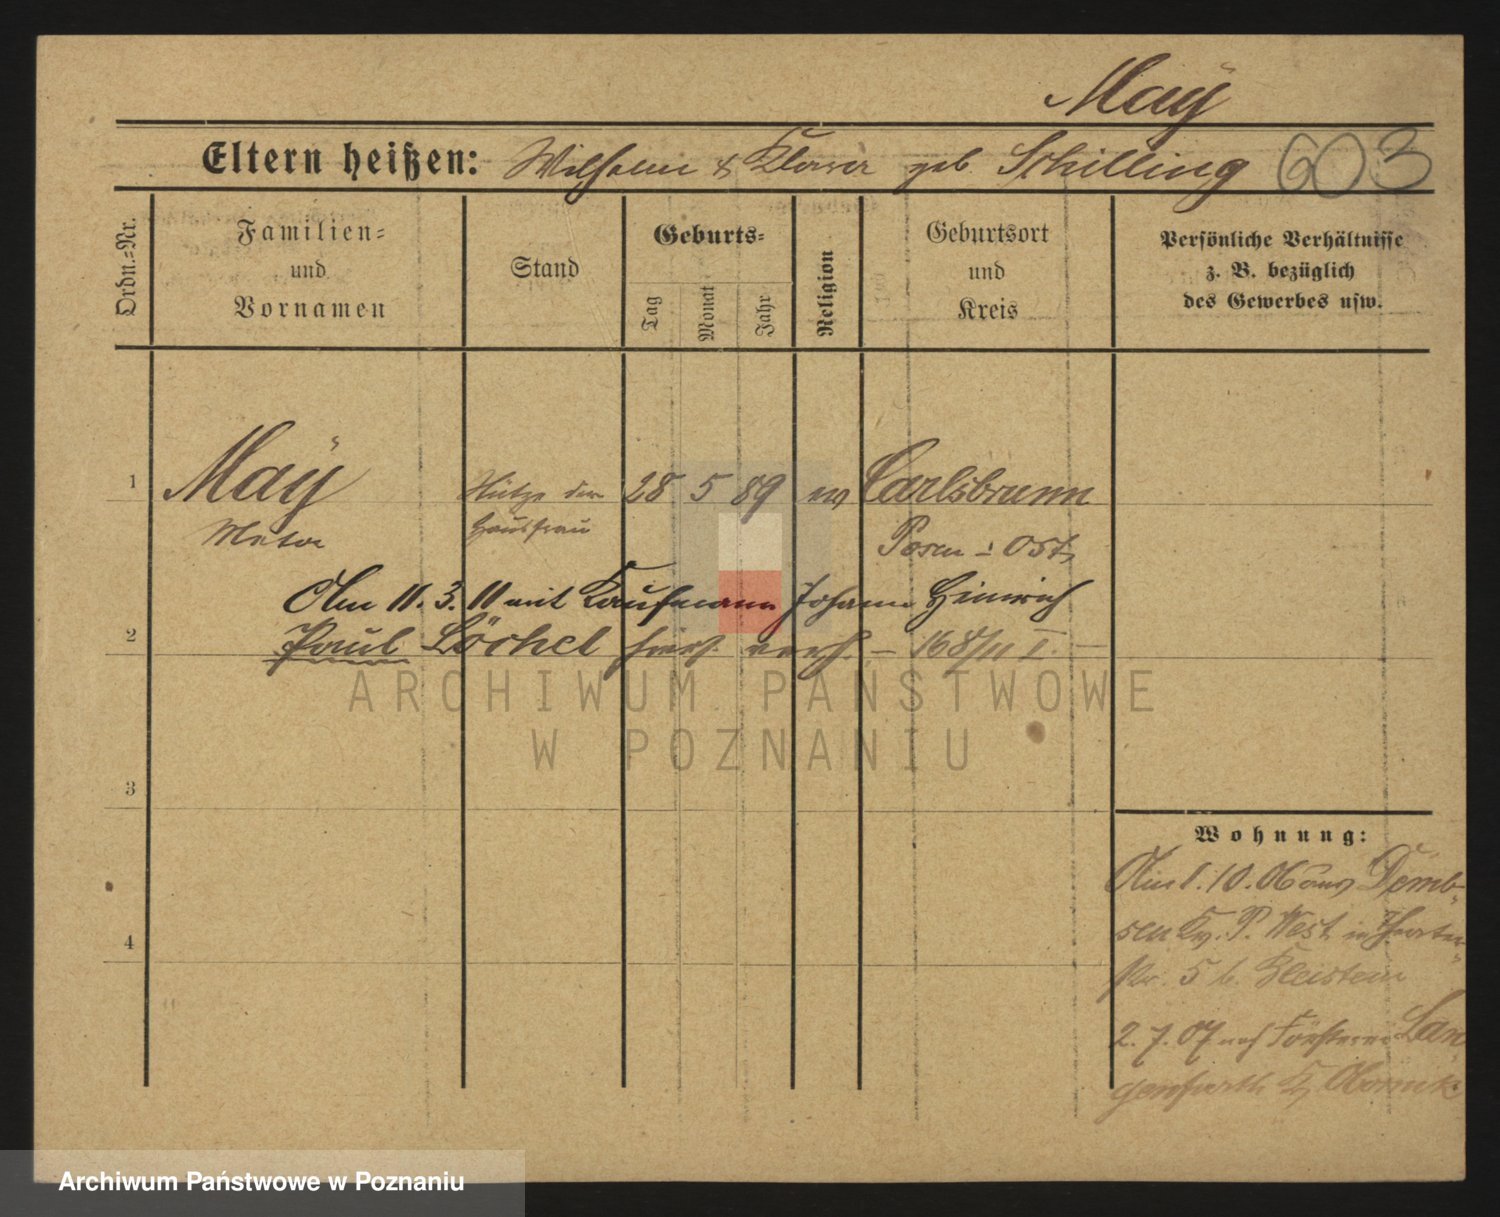 Maÿ
Eltern heißen: Wilhelm & Klara geb. Schilling 603
Ordn.-Nr.
Familien- und Vornamen
Stand
Geburts-
Tag Monat Jahr
Religion
Geburtsort und Kreis
Persönliche Verhältnisse z. B. bezüglich des Gewerbes usw.
1 Maÿ Stütze der 28 5 89 ev Carlsbrunn
Hausfrau Posen-Ost,
Am 11. 3. 11 mit Kaufmann Johann Heinrich
2 Paul Löchel hiers. verh. – 168/11 I. –
ARCHIWUM PAŃSTWOWE
W POZNANIU
3
Wohnung:
Am 1. 10. 06 aus Demb-
4 sen Kr. P. West in
5 b.
2. 7. 07 nach Försterei Lan
Kr Obornik
Archiwum Państwowe w Poznaniu